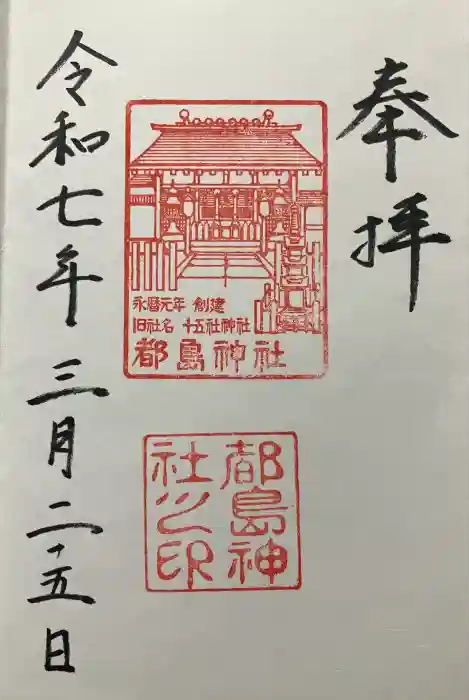 奉拝
永暦元年 創建
旧社名 十五社神社
都島神社
都島神
社之印
令和七年三月二十五日